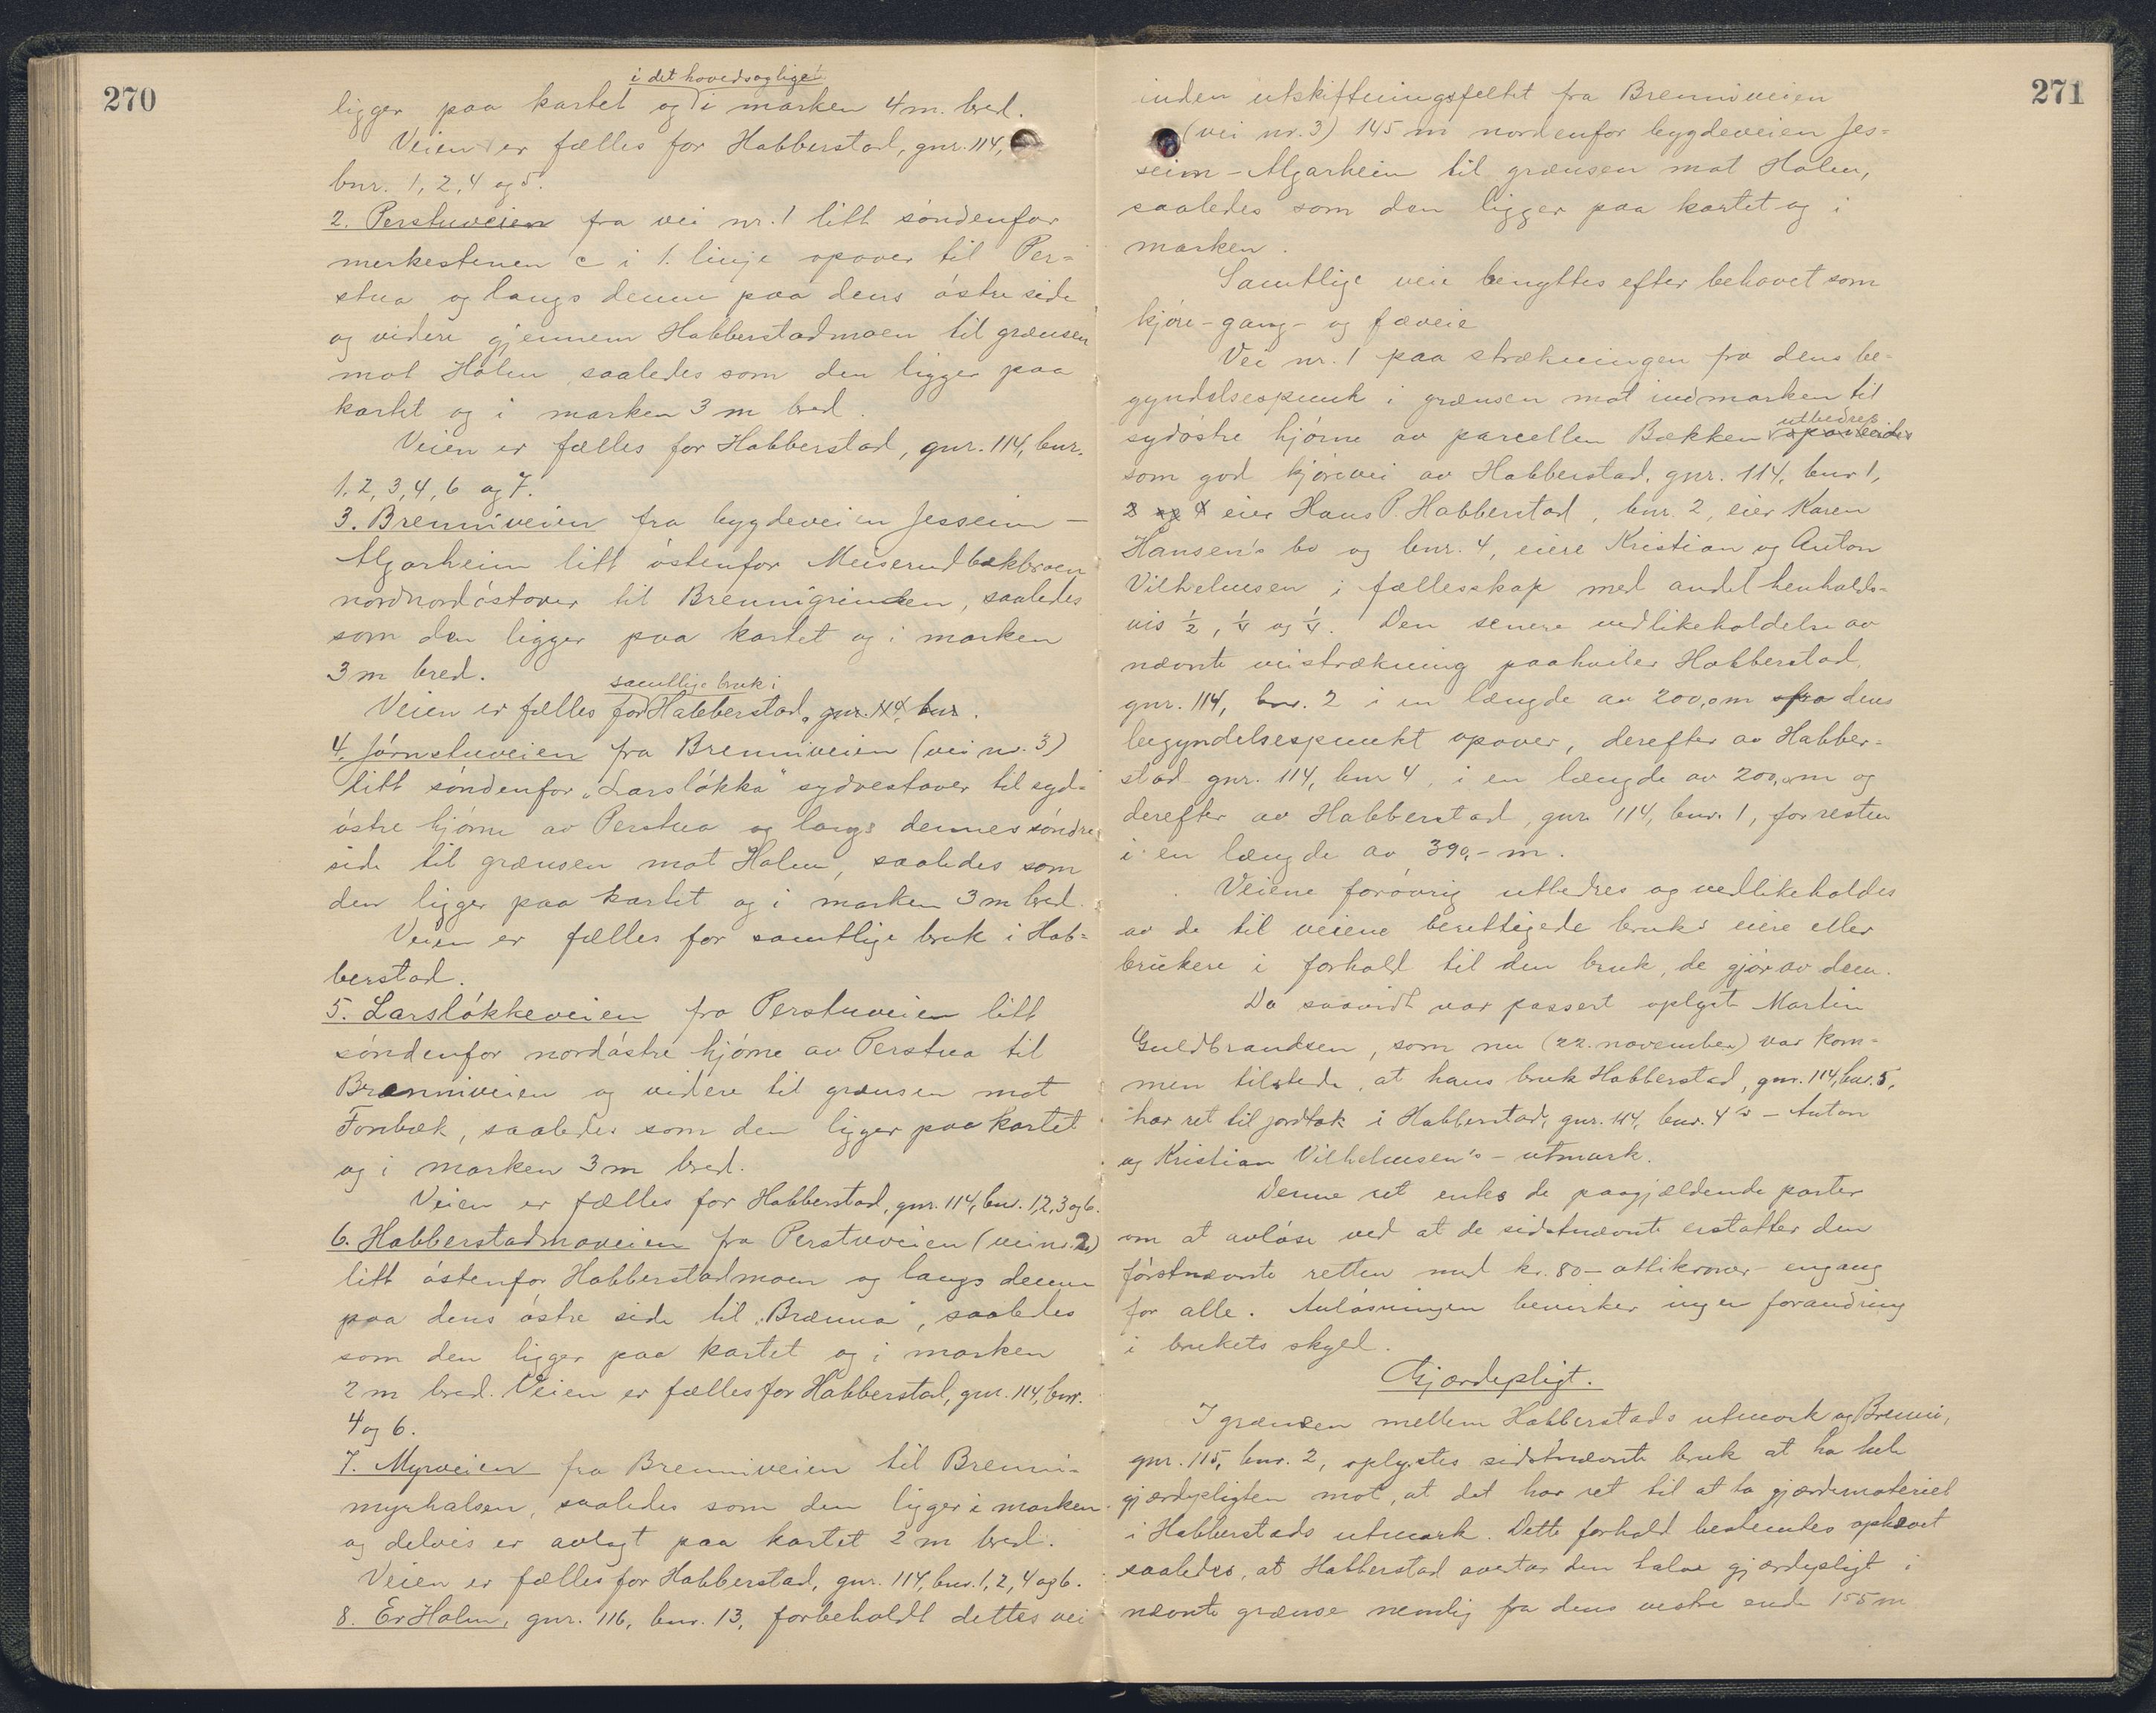 270
i det hovedsaglige
ligger paa kartet og i marken 4 m. bred.
Veien er fælles for Habberstad, gnr. 114,
bnr. 1, 2, 4 og 5.
2. Perstuveien fra vei nr. 1 litt søndenfor
merkestenen c i 1. linje opover til Per=
stua og langs denne paa dens østre side
og videre gjennem Habberstadmoen til grænsen
mot Holm, saaledes som den ligger paa
kartet og i marken 3 m bred.
Veien er fælles for Habberstad, gnr. 114, bnr.
1, 2, 3, 4, 6 og 7.
3. Brenniveien fra bygdeveien Jesseim -
Algarheim litt østenfor Meiserudbækbroen
nordnordøstover til Brennigrinden, saaledes
som den ligger paa kartet og i marken
3 m bred.
samtlige bruk i
Veien er fælles for Habberstad, gnr. 114, bnr.
4. Jørnstuveien fra Brenniveien (vei nr. 3)
litt søndenfor „Larsløkka" sydvestover til syd=
østre hjørne av Perstua og langs dennes søndre
side til grænsen mot Holm, saaledes som
den ligger paa kartet og i marken 3 m bred.
Veien er fælles for samtlige bruk i Hab=
berstad.
5. Larsløkkeveien fra Perstuveien litt
søndenfor nordøstre hjørne av Perstua til
Brenniveien og videre til grænsen mot
Fonbæk, saaledes som den ligger paa kartet
og i marken 3 m bred.
Veien er fælles for Habberstad, gnr. 114, bnr. 1, 2, 3 og 6.
6. Habberstadmoveien fra Perstuveien (vei nr. 2)
litt østenfor Habberstadmoen og langs denne
paa dens østre side til „Brænna", saaledes
som den ligger paa kartet og i marken
2 m bred. Veien er fælles for Habberstad, gnr. 114, bnr.
4 og 6.
7. Myrveien fra Brenniveien til Brenni=
myrhalsen, saaledes som den ligger i marken
og delvis er avlagt paa kartet 2 m bred.
Veien er fælles for Habberstad, gnr. 114, bnr. 1, 2, 4 og 6.
8. Er Holm, gnr. 116, bnr. 13, forbeholdt dettes vei
271
inden utskiftningsfeltet fra Brenniveien
(vei nr. 3) 145 m nordenfor bygdeveien Jes=
seim - Algarheim til grænsen mot Holm,
saaledes som den ligger paa kartet og i
marken.
Samtlige veie benyttes efter behovet som
kjøre- gang- og fæveie
Vei nr. 1 paa strækningen fra dens be=
gyndelsespunk i grænsen mot indmarken til
utbedres
sydøstre hjørne av parcellen Bækken
som god kjørevei av Habberstad, gnr. 114, bnr 1,
2 og 4 eier Hans P. Habberstad, bnr. 2, eier Karen
Hansen's bo og bnr. 4, eiere Kristian og Anton
Vilhelmsen i fællesskap med andel henholds=
vis ½, ¼ og ¼. Den senere vedlikeholdelse av
nævnte veistrækning paahviler Habberstad,
gnr. 114, bnr. 2 i en længde av 200,0 m fra dens
begyndelsespunkt opover, derefter av Habber=
stad gnr. 114, bnr 4, i en længde av 200,0 m og
derefter av Habberstad, gnr. 114, bnr. 1, for resten
i en længde av 390,- m.
Veiene forøvrig utbedres og vedlikeholdes
av de til veiene berettigede bruks eiere eller
brukere i forhold til den bruk, de gjør av dem.
Da saavidt var passert oplyste Martin
Guldbrandsen, som nu (22. november) var kom=
men tilstede, at hans bruk Habberstad, gnr. 114, bnr. 5,
har ret til jordtak i Habberstad, gnr. 114, bnr. 4's - Anton
og Kristian Vilhelmsen's - utmark.
Denne ret enks de paagjældende parter
om at avløse ved at de sidstnævnte erstatter den
førstnævnte retten med kr. 80 - ottikroner - engang
for alle. Avløsningen bevirker ingen forandring
i brukets skyld.
Gjærdepligt.
I grænsen mellem Habberstads utmark og Brenni,
gnr. 115, bnr. 2, oplystes sidstnævnte bruk at ha hele
gjærdepligten mot, at det har ret til at ta gjærdemateriel
i Habberstads utmark. Dette forhold bestemtes ophævet
saaledes, at Habberstad overtar den halve gjærdepligt i
nævnte grænse nemlig fra dens vestre ende 155 m